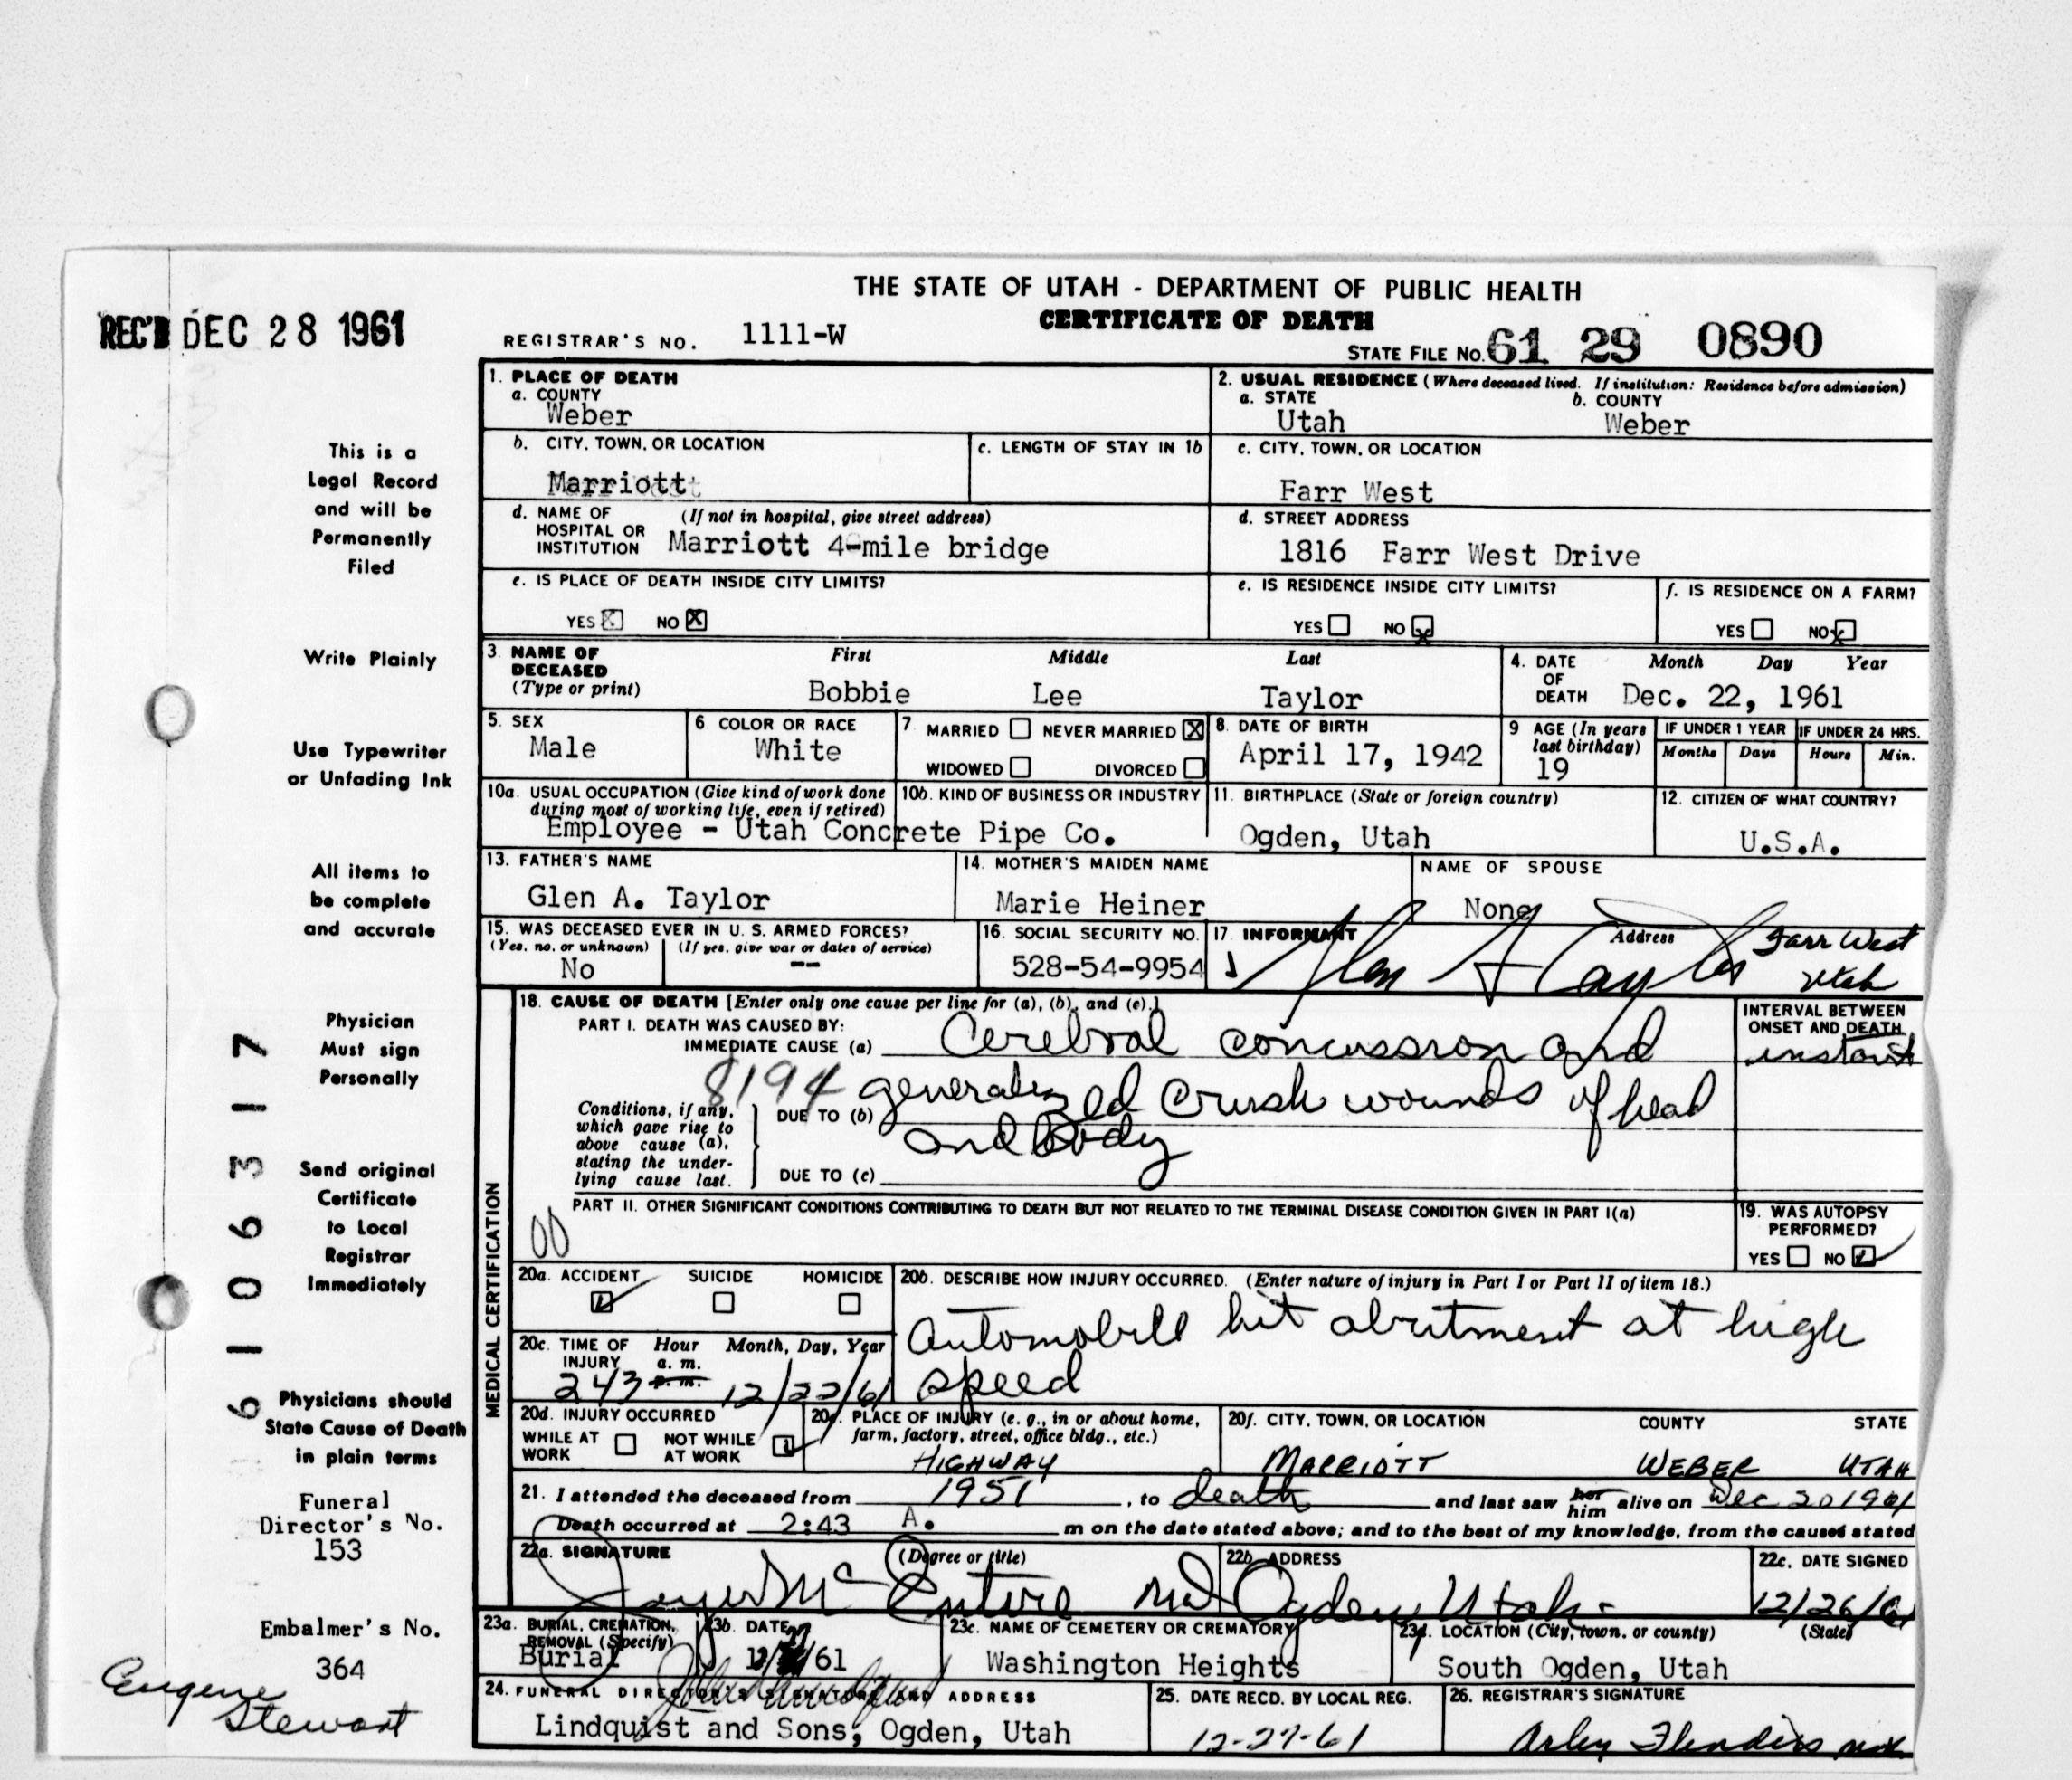 THE STATE OF UTAH - DEPARTMENT OF PUBLIC HEALTH
CERTIFICATE OF DEATH
REC'D DEC 28 1961
REGISTRAR'S NO. 1111-W
STATE FILE NO. 61 29 0890
This is a
Legal Record
and will be
Permanently
Filed
Write Plainly
Use Typewriter
or Unfading Ink
All items to
be complete
and accurate
Physician
Must sign
Personally
Send original
Certificate
to Local
Registrar
Immediately
Physicians should
State Cause of Death
in plain terms
Funeral
Director's No.
153
Embalmer's No.
364
Eugene
Stewart
61 06317
1. PLACE OF DEATH
a. COUNTY
Weber
2. USUAL RESIDENCE (Where deceased lived. If institution: Residence before admission)
a. STATE b. COUNTY
Utah Weber
b. CITY, TOWN, OR LOCATION
Marriott
c. LENGTH OF STAY IN 1b
c. CITY, TOWN, OR LOCATION
Farr West
d. NAME OF (If not in hospital, give street address)
HOSPITAL OR
INSTITUTION Marriott 4-mile bridge
d. STREET ADDRESS
1816 Farr West Drive
e. IS PLACE OF DEATH INSIDE CITY LIMITS?
YES NO X
e. IS RESIDENCE INSIDE CITY LIMITS?
YES NO X
f. IS RESIDENCE ON A FARM?
YES NO X
3. NAME OF
DECEASED
(Type or print)
First Middle Last
Bobbie Lee Taylor
4. DATE
OF
DEATH
Month Day Year
Dec. 22, 1961
5. SEX
Male
6. COLOR OR RACE
White
7 MARRIED NEVER MARRIED X
WIDOWED DIVORCED
8. DATE OF BIRTH
April 17, 1942
9 AGE (In years
last birthday)
19
IF UNDER 1 YEAR IF UNDER 24 HRS.
Months Days Hours Min.
10a. USUAL OCCUPATION (Give kind of work done
during most of working life, even if retired)
10b. KIND OF BUSINESS OR INDUSTRY
Employee - Utah Concrete Pipe Co.
11. BIRTHPLACE (State or foreign country)
Ogden, Utah
12. CITIZEN OF WHAT COUNTRY?
U.S.A.
13. FATHER'S NAME
Glen A. Taylor
14. MOTHER'S MAIDEN NAME
Marie Heiner
NAME OF SPOUSE
None
15. WAS DECEASED EVER IN U. S. ARMED FORCES?
(Yes, no. or unknown) (If yes, give war or dates of service)
No --
16. SOCIAL SECURITY NO.
528-54-9954
17. INFORMANT Address
Glen A Taylor Farr West
Utah
MEDICAL CERTIFICATION
18. CAUSE OF DEATH [Enter only one cause per line for (a), (b), and (c).]
PART I. DEATH WAS CAUSED BY:
IMMEDIATE CAUSE (a) Cerebral concussion and
8194 generalized crush wounds of head
DUE TO (b)
and Body
Conditions, if any,
which gave rise to
above cause (a),
stating the under-
lying cause last.
DUE TO (c)
INTERVAL BETWEEN
ONSET AND DEATH
instant
PART II. OTHER SIGNIFICANT CONDITIONS CONTRIBUTING TO DEATH BUT NOT RELATED TO THE TERMINAL DISEASE CONDITION GIVEN IN PART I(a)
00
19. WAS AUTOPSY
PERFORMED?
YES NO
20a. ACCIDENT SUICIDE HOMICIDE
20b. DESCRIBE HOW INJURY OCCURRED. (Enter nature of injury in Part I or Part II of item 18.)
Automobile hit abutment at high
speed
20c. TIME OF Hour Month, Day, Year
INJURY a. m.
243 p. m. 12/22/61
20d. INJURY OCCURRED
WHILE AT NOT WHILE
WORK AT WORK
20e. PLACE OF INJURY (e. g., in or about home,
farm, factory, street, office bldg., etc.)
HIGHWAY
20f. CITY, TOWN, OR LOCATION COUNTY STATE
MARRIOTT WEBER UTAH
21. I attended the deceased from 1951, to death and last saw her him alive on Dec 20 1961
Death occurred at 2:43 A. m on the date stated above; and to the best of my knowledge, from the causes stated
22a. SIGNATURE (Degree or title)
McEntire MD
22b. ADDRESS
Ogden, Utah.
22c. DATE SIGNED
12/26/61
23a. BURIAL, CREMATION,
REMOVAL (Specify)
Burial
23b. DATE
12/27/61
23c. NAME OF CEMETERY OR CREMATORY
Washington Heights
23d. LOCATION (City, town, or county) (State)
South Ogden, Utah
24. FUNERAL DIRECTOR'S SIGNATURE AND ADDRESS
Lindquist and Sons, Ogden, Utah
25. DATE RECD. BY LOCAL REG.
12-27-61
26. REGISTRAR'S SIGNATURE
Arley Flinders